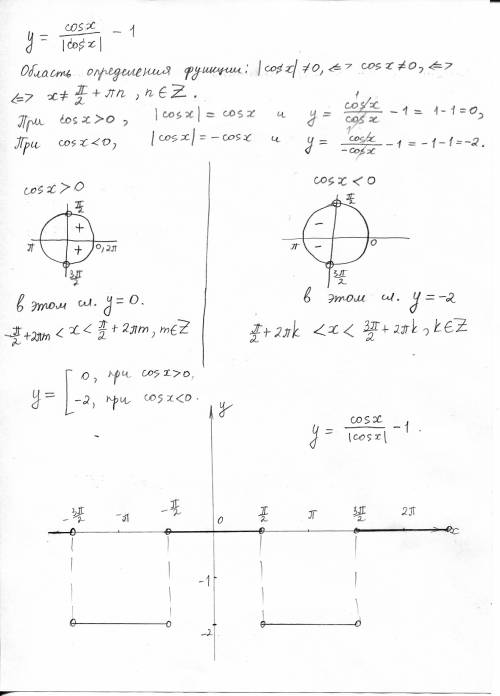 y = cosx / |cosx| − 1
Область определения функции: |cosx| ≠ 0, <=> cosx ≠ 0, <=>
<=> x ≠ π/2 + πn, n ∈ Z.
При cosx > 0, |cosx| = cosx и y = cosx / cosx − 1 = 1 − 1 = 0,
При cosx < 0, |cosx| = −cosx и y = cosx / −cosx − 1 = −1 − 1 = −2.
cosx > 0
π/2
+
π 0, 2π
+
3π/2
в этом сл. y = 0.
−π/2 + 2πm < x < π/2 + 2πm, m ∈ Z
cosx < 0
π/2
−
π 0
−
3π/2
в этом сл. y = −2
π/2 + 2πk < x < 3π/2 + 2πk, k ∈ Z
y = [ 0, при cosx > 0,
−2, при cosx < 0.
y
y = cosx / |cosx| − 1.
−3π/2 −π −π/2 0 π/2 π 3π/2 2π
x
−1
−2